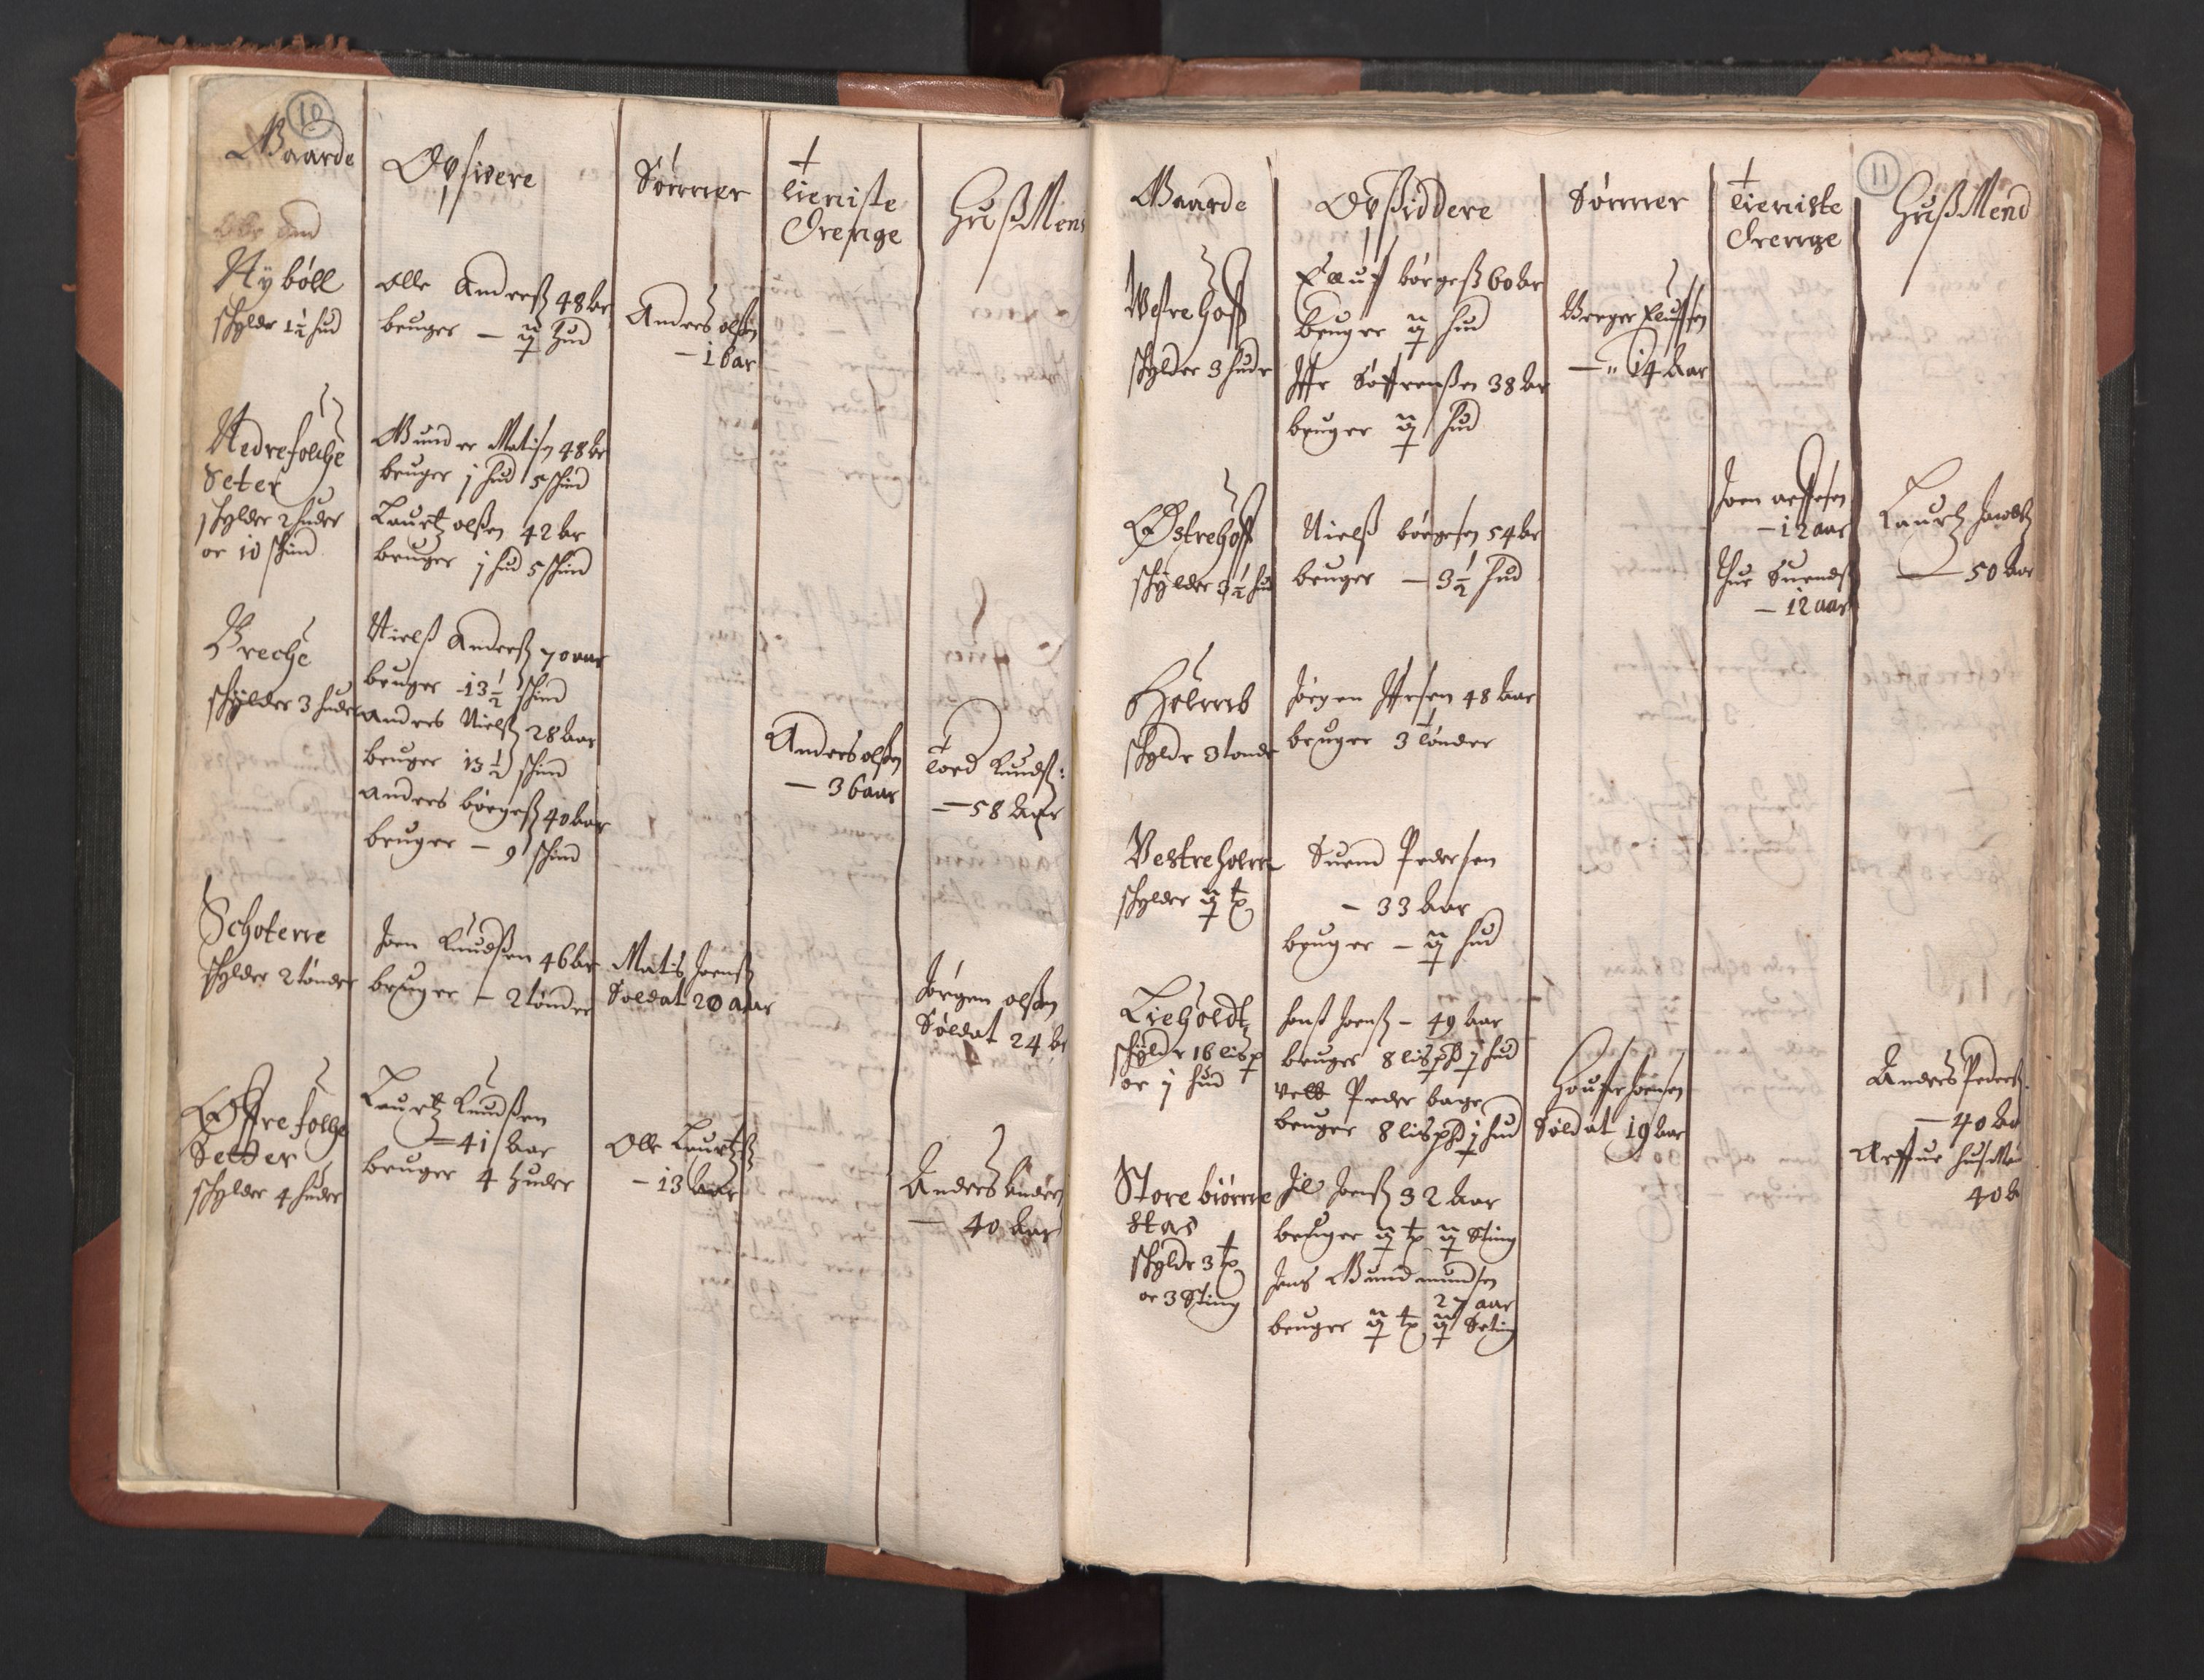 10
Gaarde
Opsidere
Sønner
tieniste
Drenge
HußMend
Nÿbøll
schylder 1½ hud
Olle Anderß 48 aar
bruger — hud
Anders olßen
— 16 aar
Nedrefolche
Seter
schylder 2 huder
oc 10 schind
Gunder Matisen 48 aar
bruger j hud 5 schind
Laurtz olßen 42 aar
bruger j hud 5 schind
Breche
schylder 3 huder
Nielß Anderß 70 aar
bruger 13½ schind
Anders Nielß 28 aar
bruger 13½ schind
Anders børgeß 40 aar
bruger — 9 schind
Anders olßen
— 36 aar
Tord Knudß:
— 58 aar
Schoterre
schylder 2 tønder
Joen Knudßen 46 aar
bruger — 2 tønder
Matis Joenß
Soldat 20 aar
Jørgen olßen
Soldat 24 aar
Øffre folche
Setter
schylder 4 huder
Laurtz Knudßen
— 41 aar
bruger 4 huder
Olle Laurtzß
— 13 aar
Anders
— 40 aar
11
Gaarde
Opßiddere
Sønner
tieniste
Drenge
HußMend
Vestrehoff
schylder 3 huder
Elluf børgeß 60 aar
bruger hud
Iffr Søffrenßen 38 aar
bruger hud
Børger Elluffsen
— 14 aar
Østrehoff
schÿlder 3½ hud
Nielß børgesen 54 aar
bruger — 3½ hud
Joen
— 12 aar
Suendß
— 12 aar
Laurtz Jacobß
— 50 aar
schylder 3 tønder
Jørgen Iffrsen 48 aar
bruger 3 tønder
Vestreholm
schylder
Suend Pedersen
— 33 aar
bruger — hud
Lieholdt
schylder 16 lisp
oc j hud
Joenß — 49 aar
bruger 8 lispd j hud
Peder bager
bruger 8 lispd j hud
Joensen
Soldat 19 aar
Anders Pederß.
— 40 aar
husMand
40 aar
Store biørne
stad
schylder 3
oc 3 Sting
Joenß 32 aar
bruger Sting
Jens Gundmundsen
27 aar
bruger Seting